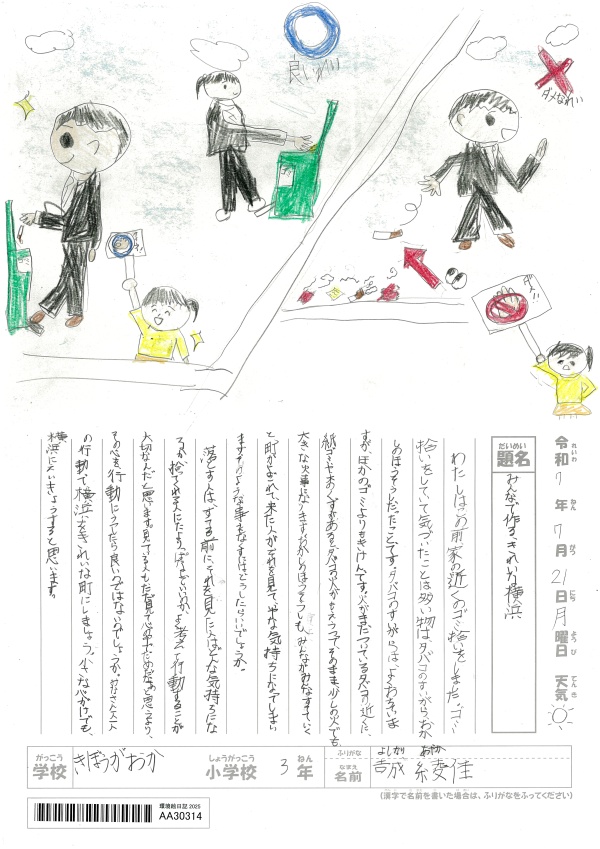 良い例
ダメなれい
良い
ダメ!!
令和7年7月21日月曜日 天気
れいわ ねん がつ にち ようび てんき
だいめい
題名
みんなで作る、きれいな横浜
わたしはこの前家の近くのゴミ拾いをしました。ゴミ
拾いをしていて気づいたことは多い物はタバコのすいがらやおか
しのほうそうだったことです。タバコのすいがらは、よくおちていま
すが、ほかのゴミよりもきけんです。火がまだついているタバコの近くに、
紙ゴミや木のくずがあるとタバコの火がもえうつって、そのまま少しの火でも
大きな火事になってしまうおかしのほうそうしも、みんながみんなすてていく
と町がよごれて、来た人がそれを見て、いやな気持ちになってしまい
ますそのような事をなくすにはどうしたらいいでしょうか。
落とす人は、すてる前に、それを見た人はどんな気持ちにな
るか捨てられた人にたよってはどうしていいのか、よく考えて行動することが
大切なんだと思います。見てる人もただ見て心の中でだめだなあと思うより、
その心を行動にうつしたら良いのではないのでしょうか。みなさん一人一人
の行動で横浜をきれいな町にしましょう。小さな心がけでも、
横浜にたいきょうすると思います。
がっこう
学校
きぼうがおか
しょうがっこう
小学校
3年
ねん
ふりがな
よしかり あやか
なまえ
名前
吉成 綾佳
(漢字で名前を書いた場合は、ふりがなをふってください)
環境絵日記2025
AA30314